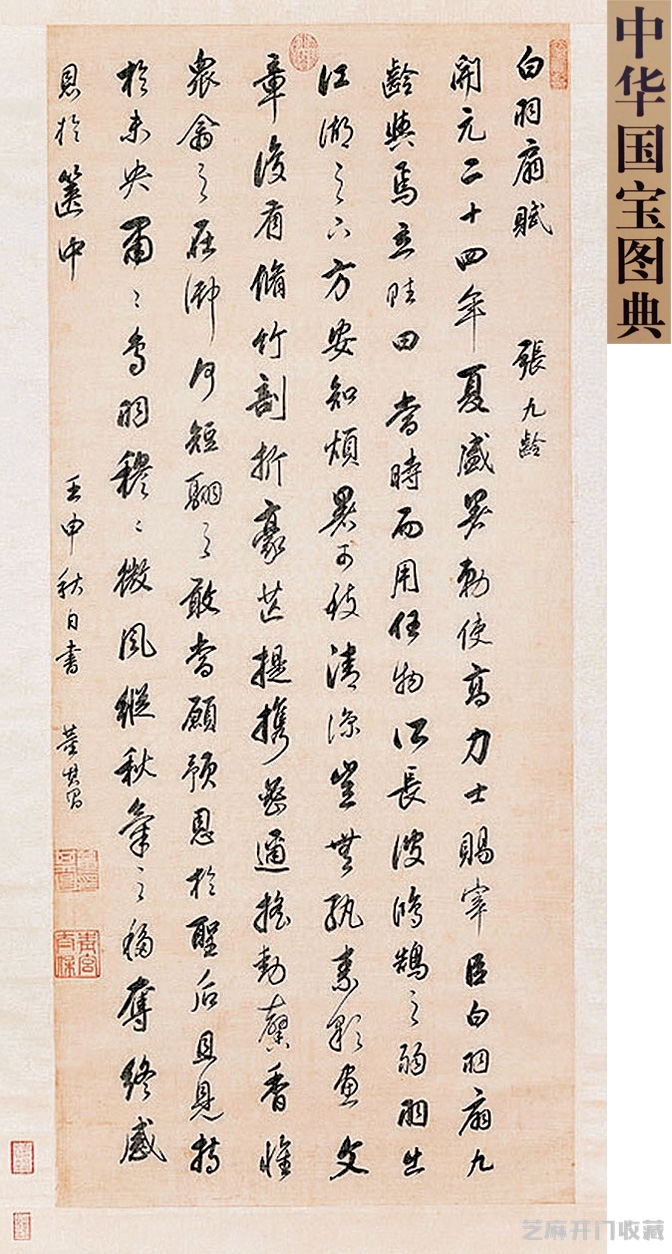 中华国宝图典
白羽扇賦 張九齡
開元二十四年夏盛暑勅使高力士賜宰臣白羽扇九
齡與焉立賦曰當時而用任物所長彼鴻鵠之弱羽出
江湖之下方安知煩暑可致清涼豈無紈素彩畫文
章復有脩竹剖析豪芒提攜密邇搖動馨香惟
衆禽之在御何短翮之敢當顧預恩於聖后且見持
於未央肅〻鳥羽穆〻微風縱秋氣之移奪終感
恩於篋中 壬申秋日書 董其昌
青宮太保
芝麻开门收藏